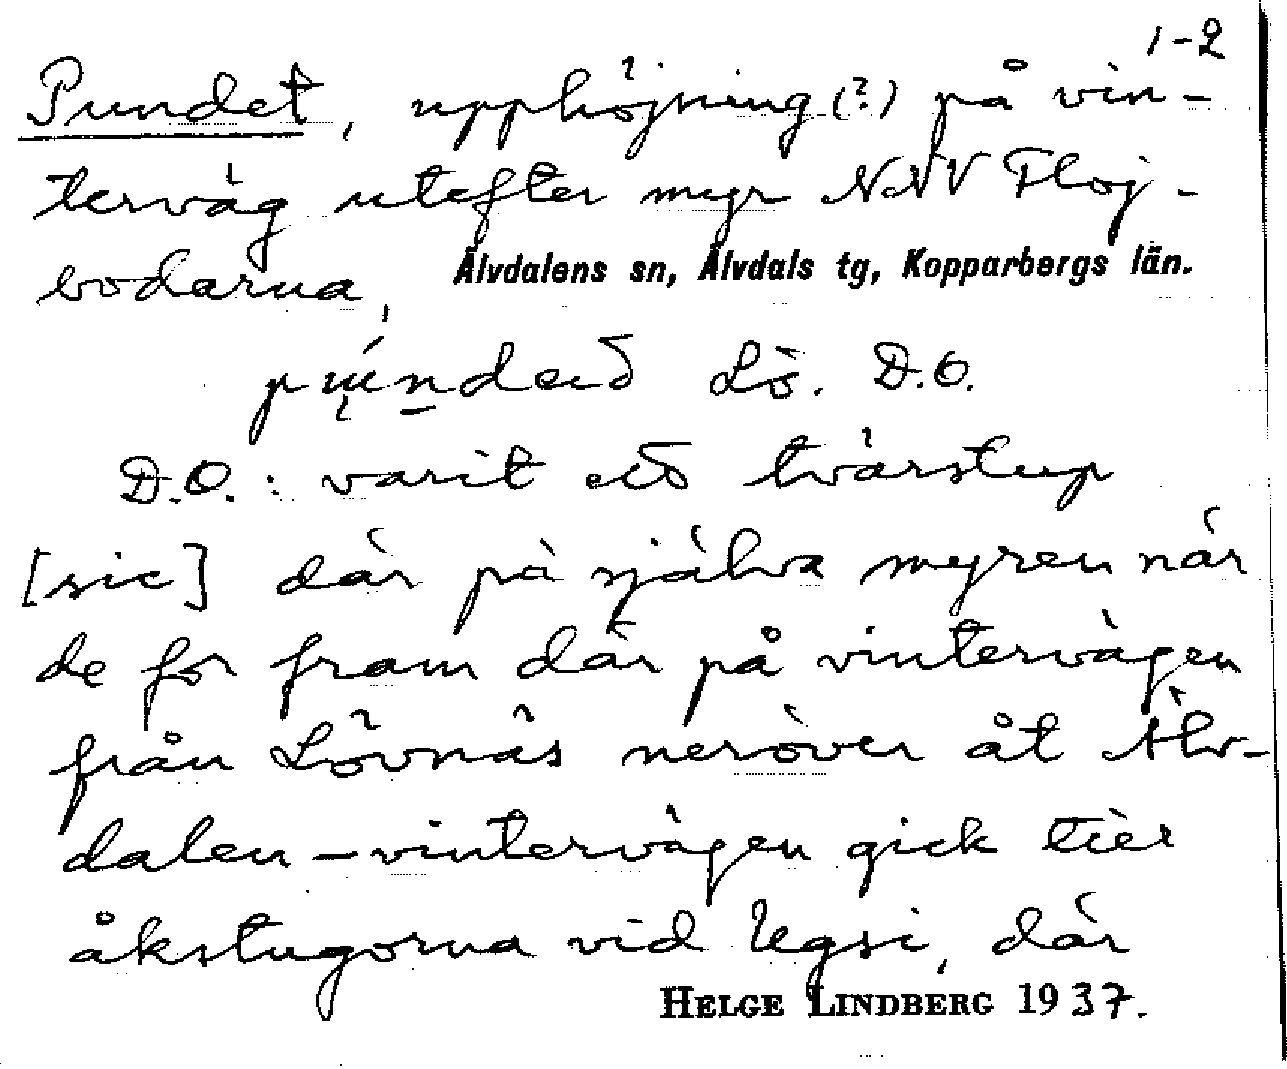 1-2
Pundet, upphöjning (?) på vin-
terväg utefter myr NNV Fløj-
bodarna,
Älvdalens sn, Älvdals tg, Kopparbergs län.
Lö. D.O.
D.O.: varit eð tvärstup
[sic] där på själva myren när
de for fram där på vintervägen
från Lövnäs neröver åt Älv-
dalen – vintervägen gick tier
åkstugorna vid Uggsi, där
HELGE LINDBERG 1937.